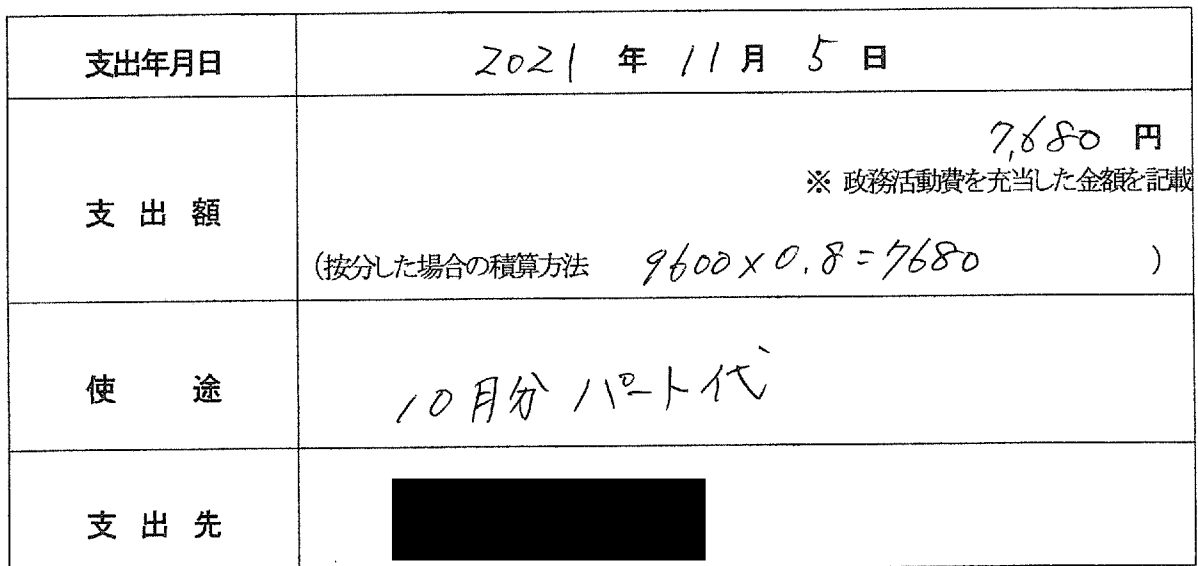 支出年月日 2021 年 11 月 5 日
7,680 円
※ 政務活動費を充当した金額を記載
支 出 額
(按分した場合の積算方法 9600×0.8=7680 )
使 途 10月分 パート代
支 出 先